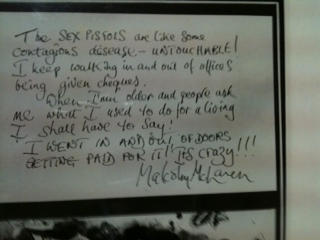 The SEX PISTOLS are like some
contagious disease - UNTOUCHABLE!
I keep walking in and out of offices
being given cheques.
When I am older and people ask
me what I used to do for a living
I shall have to say:
I WENT IN AND OUT OF DOORS
GETTING PAID FOR IT! IT'S CRAZY!!!
Malcolm McLaren